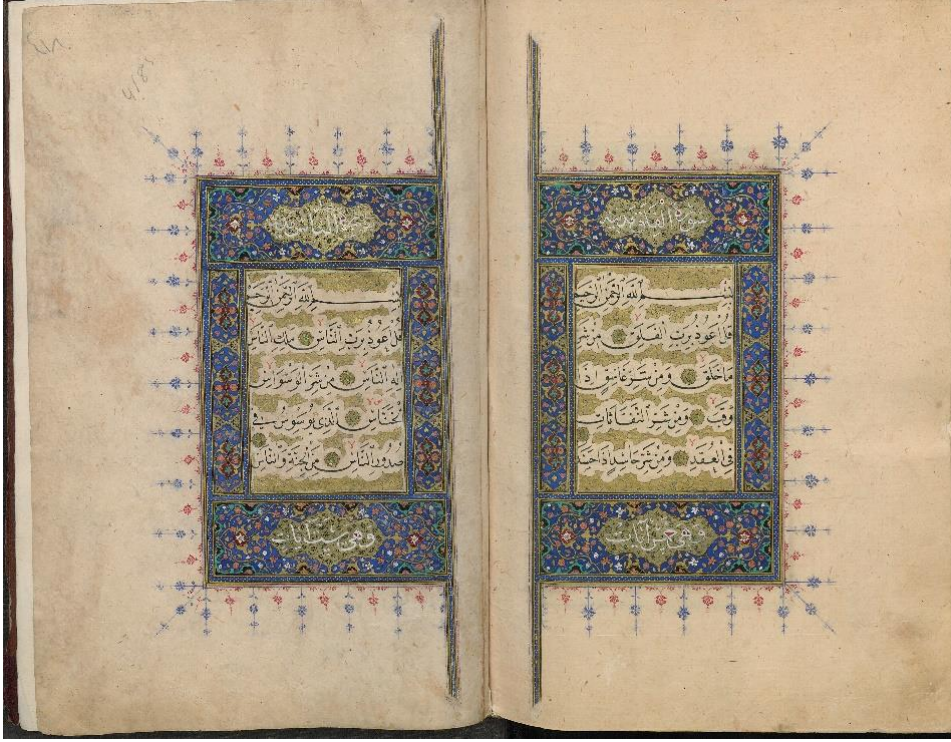 سورة الفلق
بِسْمِ اللَّهِ الرَّحْمَٰنِ الرَّحِيمِ
قُلْ أَعُوذُ بِرَبِّ الْفَلَقِ مِنْ شَرِّ
مَا خَلَقَ وَمِنْ شَرِّ غَاسِقٍ إِذَا
وَقَبَ وَمِنْ شَرِّ النَّفَّاثَاتِ
فِي الْعُقَدِ وَمِنْ شَرِّ حَاسِدٍ إِذَا حَسَدَ
وهي خمس آيات
سورة الناس
بِسْمِ اللَّهِ الرَّحْمَٰنِ الرَّحِيمِ
قُلْ أَعُوذُ بِرَبِّ النَّاسِ مَلِكِ النَّاسِ
إِلَٰهِ النَّاسِ مِنْ شَرِّ الْوَسْوَاسِ
الْخَنَّاسِ الَّذِي يُوَسْوِسُ فِي
صُدُورِ النَّاسِ مِنَ الْجِنَّةِ وَالنَّاسِ
وهي ست آيات